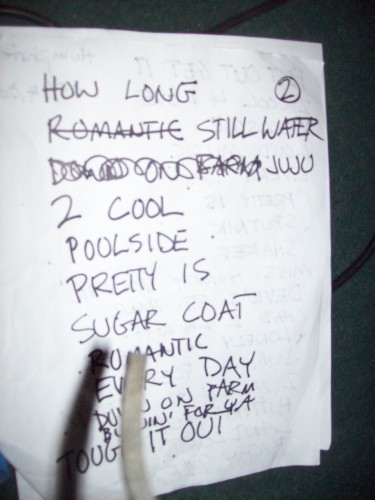 HOW LONG 2
ROMANTIC STILL WATER
FARM JUJU
2 COOL
POOLSIDE
PRETTY IS
SUGAR COAT
ROMANTIC
EVERY DAY
DOWN ON FARM
BURNIN' FOR YA
TOUGH IT OUT